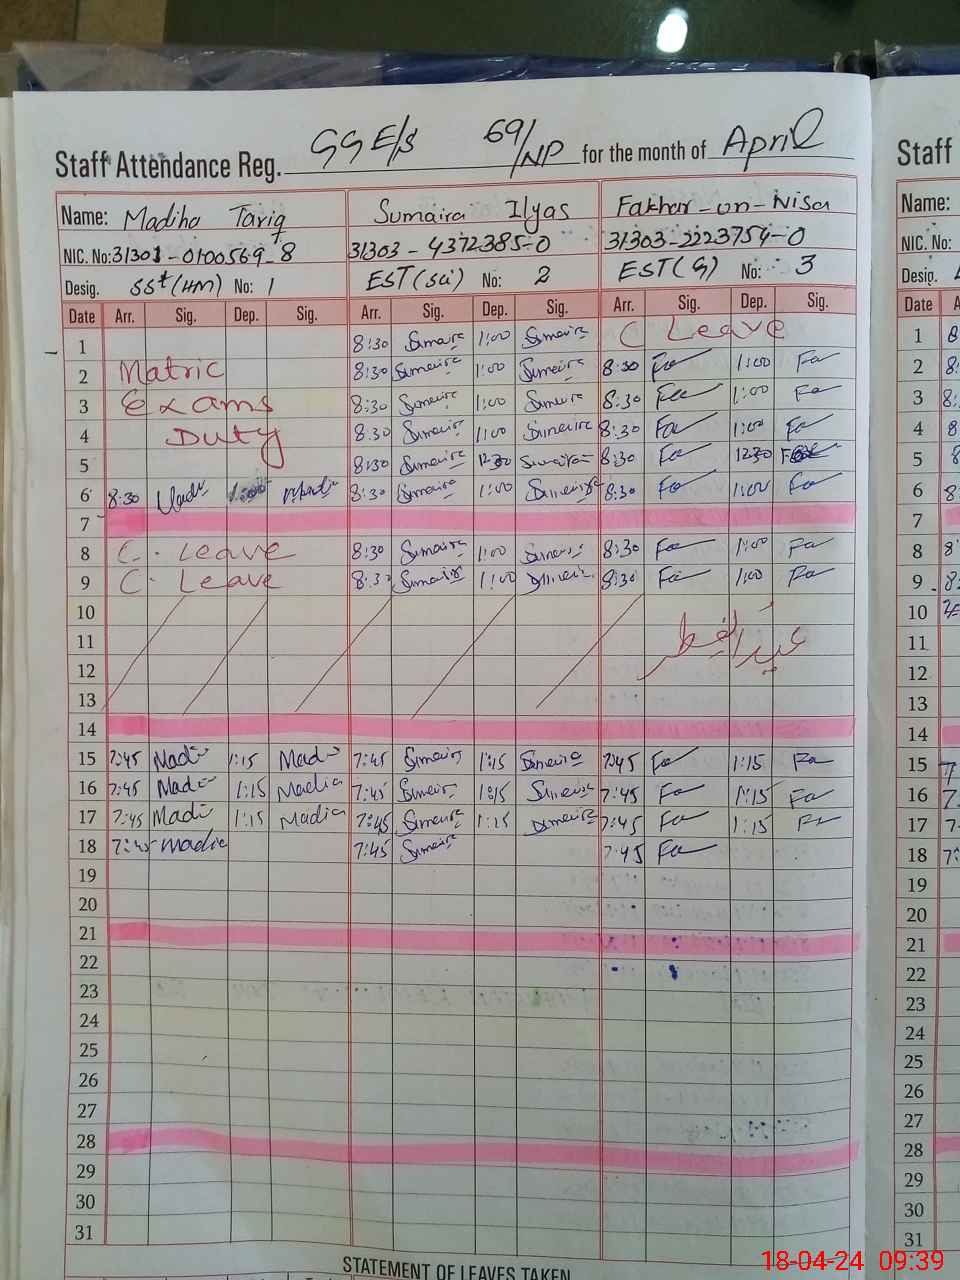 Staff Attendance Reg. GGE/S 69/NP for the month of April
Name: Madiha Tariq Sumaira Ilyas Fakhar-un-Nisa
NIC. No: 31303-0100569-8 31303-4372385-0 31303-2223754-0
Desig. SSt(HM) No: 1 EST(Sci) No: 2 EST(G) No: 3
Date Arr. Sig. Dep. Sig. Arr. Sig. Dep. Sig. Arr. Sig. Dep. Sig.
1 8:30 Sumaira 1:00 Sumaira C Leave
2 Matric 8:30 Sumaira 1:00 Sumaira 8:30 Fa 1:00 Fa
3 Exams 8:30 Sumaira 1:00 Sumaira 8:30 Fa 1:00 Fa
4 Duty 8:30 Sumaira 1:00 Sumaira 8:30 Fa 1:00 Fa
5 8:30 Sumaira 12:30 Sumaira 8:30 Fa 12:30
6 8:30 Madi 1:00 8:30 Sumaira 1:00 Sumaira 8:30 Fa 1:00 Fa
7
8 C. Leave 8:30 Sumaira 1:00 Sumaira 8:30 Fa 1:00 Fa
9 C. Leave 8:30 Sumaira 1:00 Sumaira 8:30 Fa 1:00 Fa
10
11 عیدالفطر
12
13
14
15 7:45 Madi 1:15 Madi 7:45 Sumaira 1:15 Sumaira 7:45 Fa 1:15 Fa
16 7:45 Madi 1:15 Madia 7:45 Sumaira 1:15 Sumaira 7:45 Fa 1:15 Fa
17 7:45 Madi 1:15 Madia 7:45 Sumaira 1:15 Sumaira 7:45 Fa 1:15 Fa
18 7:45 Madia 7:45 Sumaira 7:45 Fa
19
20
21
22
23
24
25
26
27
28
29
30
31
STATEMENT OF LEAVES TAKEN
Staff
Name:
NIC. No:
Desig.
Date
1
2
3
4
5
6
7
8
9
10
11
12
13
14
15
16
17
18
19
20
21
22
23
24
25
26
27
28
29
30
31
18-04-24 09:39